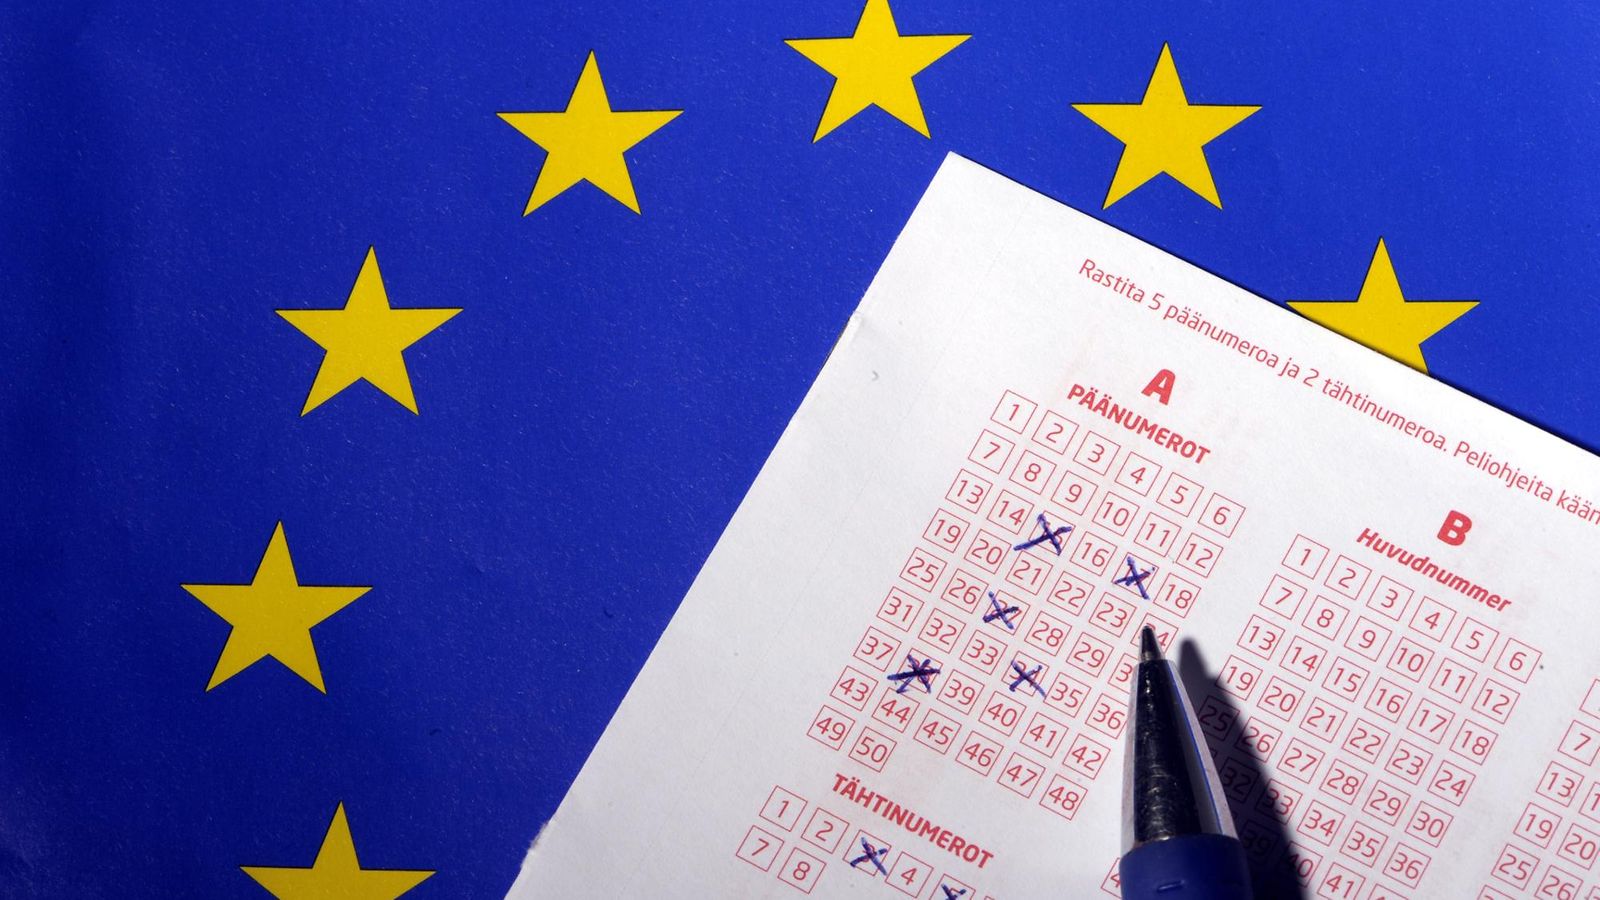 Rastita 5 päänumeroa ja 2 tähtinumeroa. Peliohjeita
A
PÄÄNUMEROT
1 2 3 4 5 6
7 8 9 10 11 12
13 14 16 18
19 20 21 22 23
25 26 28 29
31 32 33 35 36
37 39 40 41 42
43 44 45 46 47 48
49 50
TÄHTINUMEROT
1 2 4
7 8
B
Huvudnummer
1 2 3 4 5 6
7 8 9 10 11 12
13 14 15 16 17 18
19 20 21 22 23 24
25 26 27 28 29 30
32 33 34 35 36
39 40 41
7
13
19 20
25 26